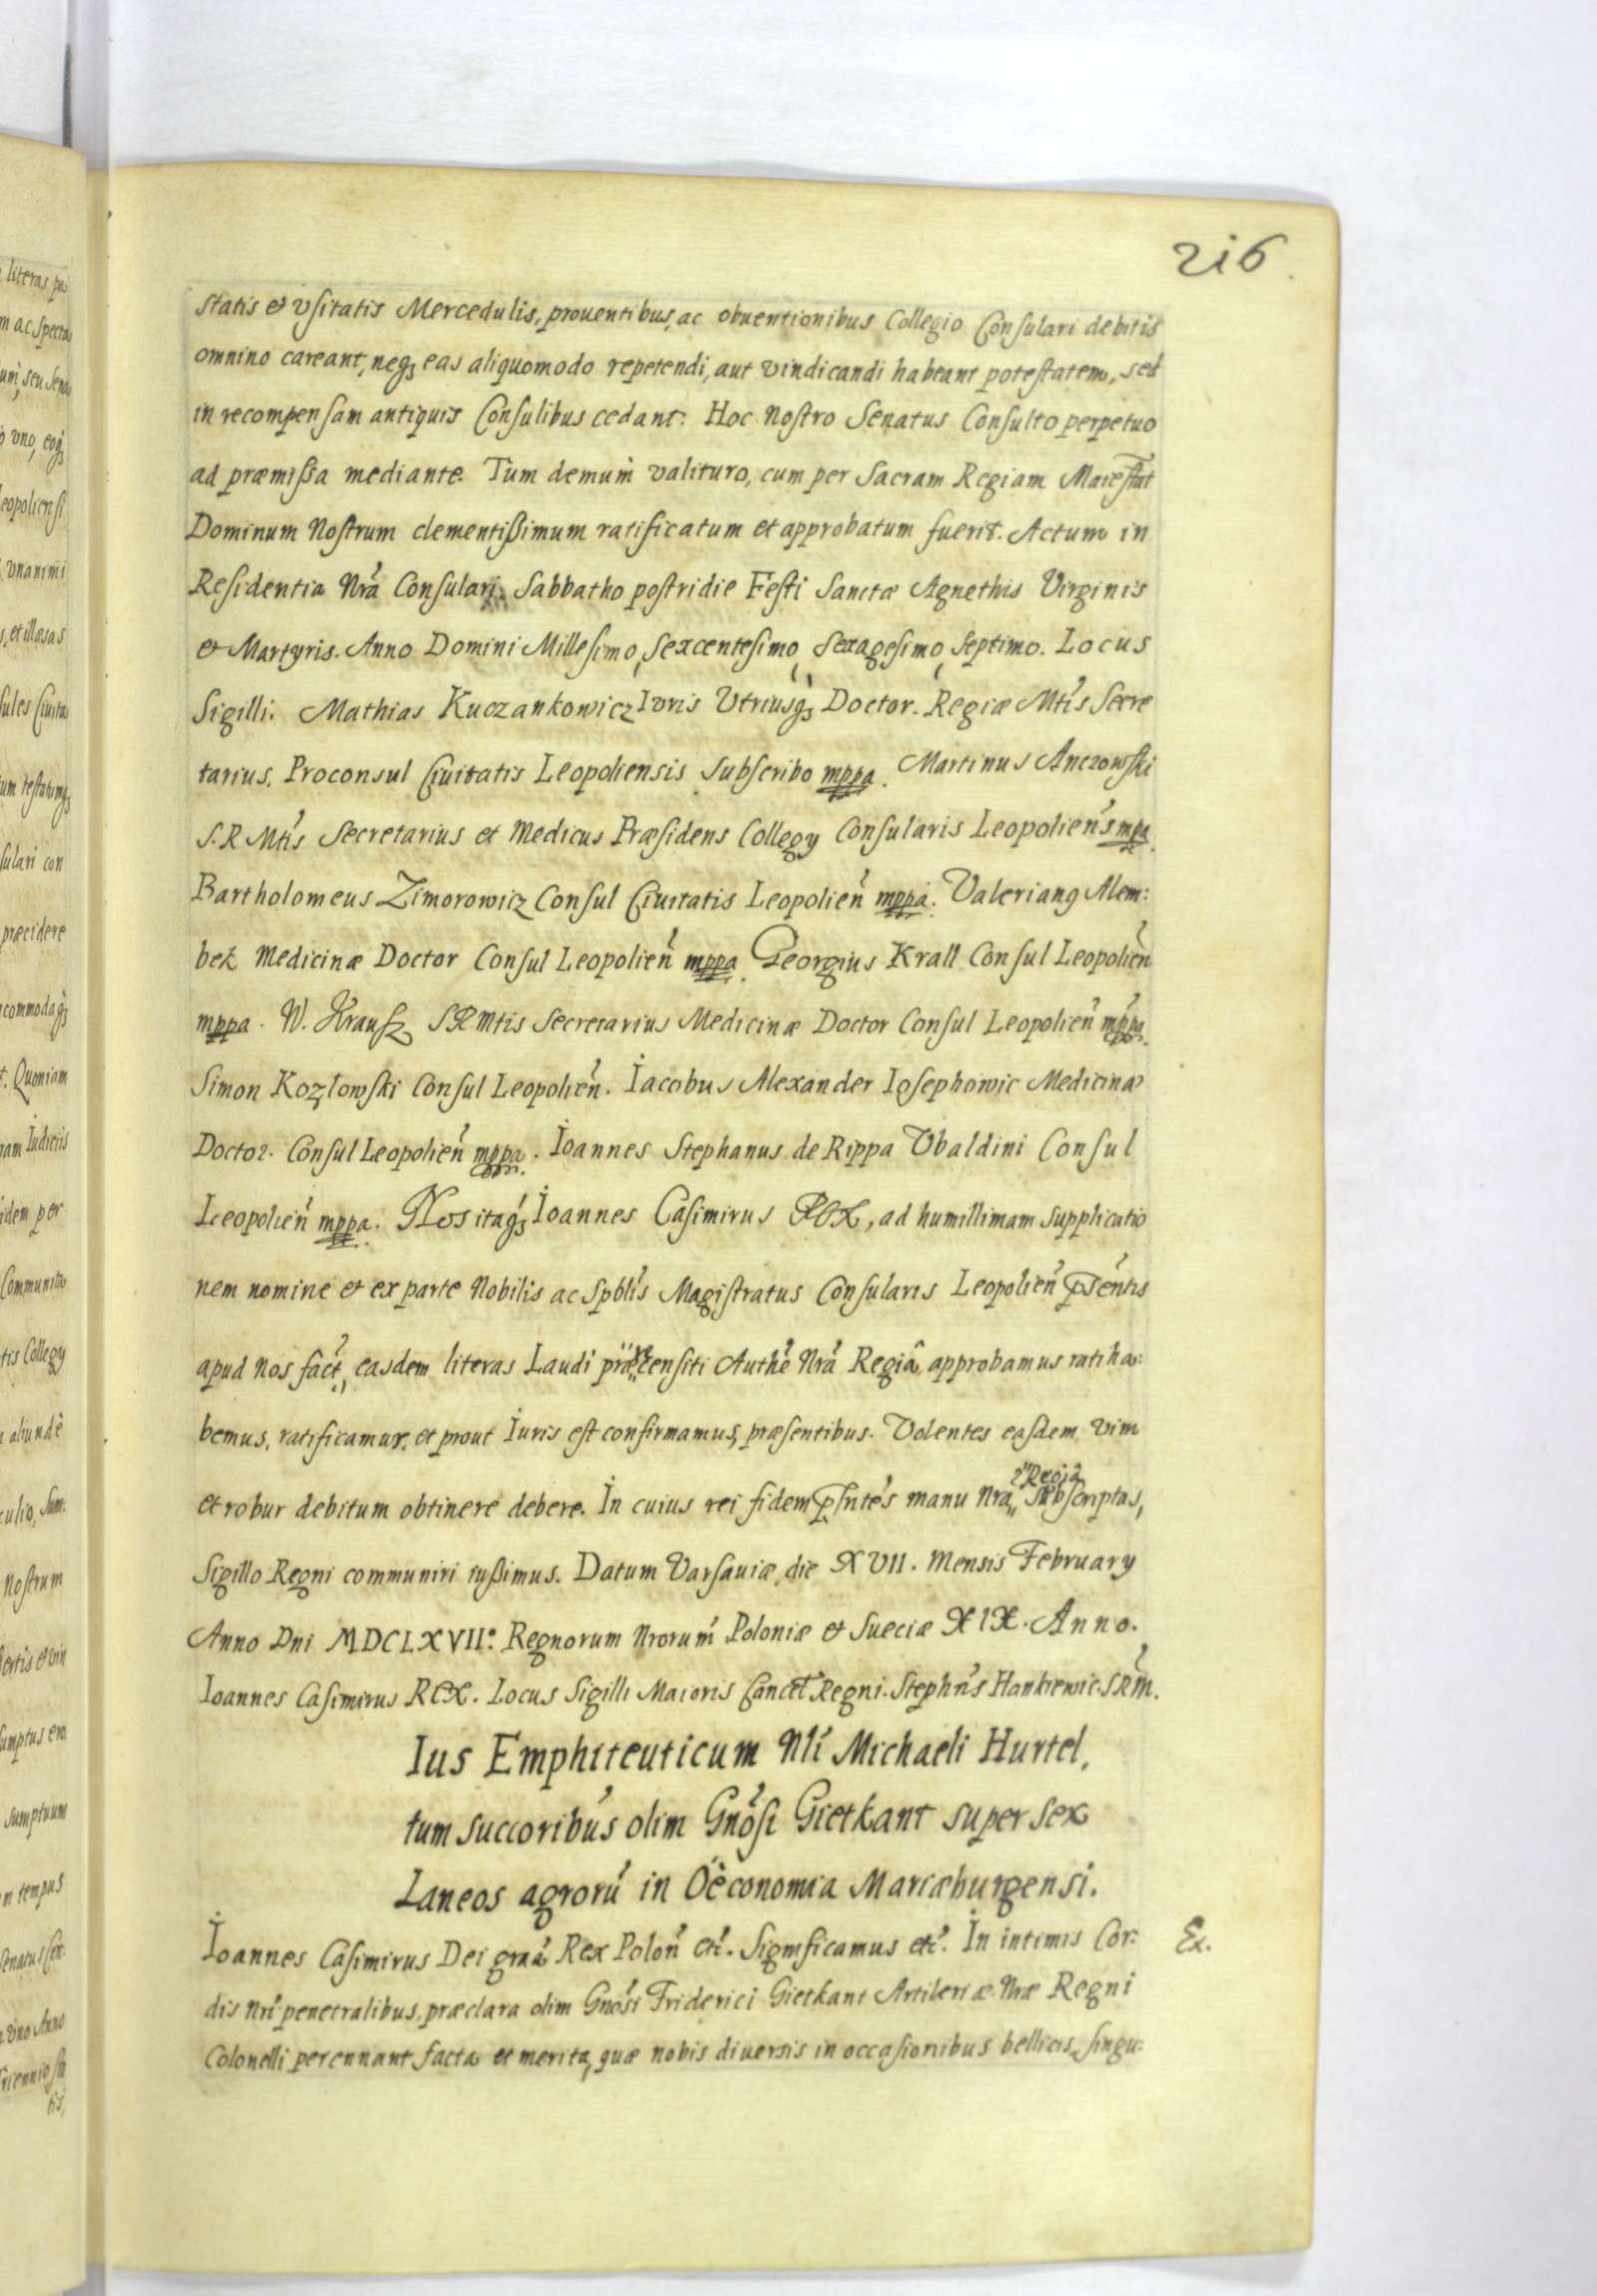 216
statis et vsitatis Mercedulis, prouentibus, ac obuentionibus Collegio Consulari debitis
omnino careant, neq₃ eas aliquomodo repetendi, aut vindicandi habeant potestatem, sed
in recompensam antiquis Consulibus cedant: Hoc Nostro Senatus Consulto perpetuo
ad præmissa mediante. Tum demum valituro, cum per Sacram Regiam Maiestat
Dominum Nostrum clementissimum ratificatum et approbatum fuerit. Actum in
Residentia Nrã Consulari, Sabbatho postridie Festi Sanctæ Agnethis Virginis
et Martyris. Anno Domini Millesimo, Sexcentesimo, Sexagesimo, Septimo. Locus
Sigilli. Mathias Kuczankowicz Iuris Vtriusq₃ Doctor. Regiæ Mtis Secre
tarius, Proconsul Ciuitatis Leopoliensis subscribo mppa. Martinus Anczowski
S. R Mtis Secretarius et Medicus Præsidens Collegy Consularis Leopoliens mpa
Bartholomeus Zimorowicz Consul Ciuitatis Leopolien mppa. Valerianq Alem:
bek Medicinæ Doctor Consul Leopolien mppa Georgius Krall Consul Leopolien
mppa. W. Krausz SRMtis Secretarius Medicinæ Doctor Consul Leopolien mppa
Simon Kozłowski Consul Leopolien. Iacobus Alexander Iosephowic Medicinæ
Doctor. Consul Leopolien mppa. Ioannes Stephanus de Rippa Vbaldini Consul
Leopolien mppa. Nos itaq₃ Ioannes Casimirus REX, ad humillimam supplicatio
nem nomine et ex parte Nobilis ac Spblis Magistratus Consularis Leopolien pñtis
apud Nos fact, easdem literas Laudi præcensiti Authe Nrã Regiâ approbamus ratiha:
bemus, ratificamus, et prout Iuris est confirmamus, præsentibus. Volentes easdem vim
et robur debitum obtinere debere. In cuius rei fidem pñtes manu Nrã Regiâ subscriptas,
Sigillo Regni communiri iussimus. Datum Varsauiæ, die XVII. Mensis February
Anno Dni MDCLXVII°. Regnorum Nrorum Poloniæ et Sueciæ XIX. Anno.
Ioannes Casimirus REX. Locus Sigilli Maioris Cancel Regni. Stephns Hankiewic SRM.
Ius Emphiteuticum Nli Michaeli Hurtel,
tum succoribus olim Gnosi Gietkant super sex
Laneos agrorũ in Oèconomia Mariæburgensi.
Ioannes Casimirus Dei graã Rex Polon etc. Significamus etc. In intimis Cor: Ex.
dis nri penetralibus, præclara olim Gnosi Friderici Gietkant Artileriæ Nræ Regni
Colonelli perennant facta et merita, quæ nobis diuersis in occasionibus bellicis, singu: